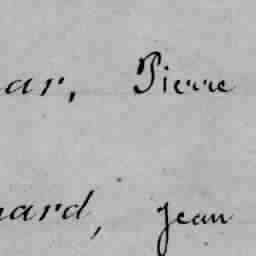 ar, Pierre
nard, Jean